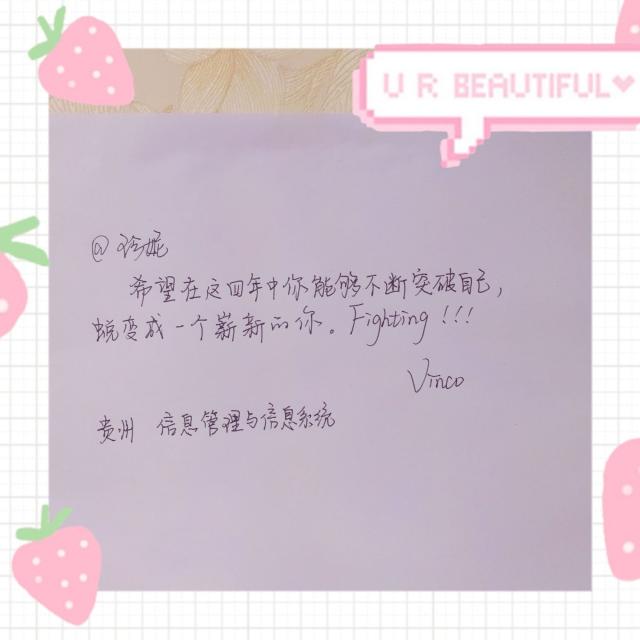 U R BEAUTIFUL
@玲妮
希望在这四年中你能够不断突破自己，
蜕变成一个崭新的你。Fighting!!!
Vinco
贵州 信息管理与信息系统